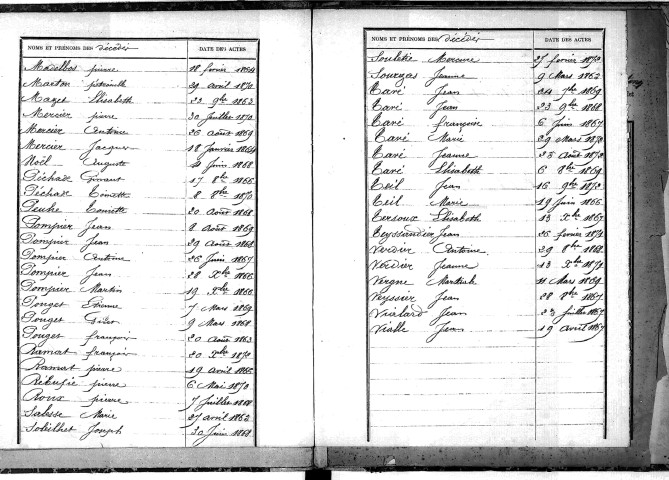 NOMS ET PRÉNOMS DES décédés DATE DES ACTES
Madelbos pierre 18 février 1864
Marton pétronille 29 avril 1870
Maget Elisabeth 23 9bre 1863
Mercier pierre 30 Juillet 1870
Mercier Antoine 26 Août 1869
Mercier Jacques 18 Janvier 1864
Noël Auguste 4 Juin 1868
Péchaix 17 8bre 1866
Péchaix Toinette 8 8bre 1870
Peuhe Toinette 20 Août 1868
Pompier Jean 2 Août 1869
Pompier Jean 29 Août 1868
Pompier Antoine 26 Juin 1867
Pompier Jean 28 Xbre 1866
Pompier Martin 19 Xbre 1866
Pouget Etienne 7 Mars 1869
Pouget 9 Mars 1868
Pouget françois 20 Août 1863
Ramat françois 20 Xbre 1870
Ramat pierre 19 avril 1866
Rébufie pierre 6 Mai 1870
Roux pierre 7 Juillet 1868
Salesse Marie 27 avril 1862
Soleilhet Joseph 30 Juin 1868
NOMS ET PRÉNOMS DES décédés DATE DES ACTES
Souletie Mercure 25 février 1870
Sourzas Jeanne 9 Mars 1862
Tavé Jean 24 7bre 1869
Tavé Jean 23 9bre 1868
Tavé françoise 6 Juin 1867
Tavé Marie 29 Mars 1870
Tavé Jeanne 25 Août 1872
Tavé Elisabeth 6 8bre 1869
Teil Jean 16 9bre 1872
Teil Marie 19 Juin 1866
Tersoux Elisabeth 13 Xbre 1867
Teyssandier Jean 26 février 1872
Verdier Antoine 29 8bre 1868
Verdier Jeanne 13 Xbre 1872
Vergne Martiale 11 Mars 1869
Veyssier Jean 28 7bre 1867
Vialard Jean 23 Juillet 1867
Vialle Jean 19 avril 1867